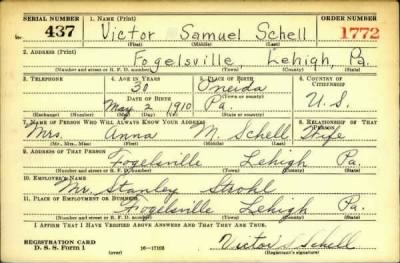 SERIAL NUMBER 1. NAME (Print) ORDER NUMBER
437 Victor Samuel Schell 1772
(First) (Middle) (Last)
2. ADDRESS (Print)
Fogelsville, Lehigh, Pa.
(Number and street or R. F. D. number) (Town) (County) (State)
3. TELEPHONE 4. AGE IN YEARS 5. PLACE OF BIRTH 6. COUNTRY OF CITIZENSHIP
30 Oneida
DATE OF BIRTH (Town or county)
May 2 1910 Pa. U. S.
(Exchange) (Number) (Mo.) (Day) (Yr.) (State or country)
7. NAME OF PERSON WHO WILL ALWAYS KNOW YOUR ADDRESS 8. RELATIONSHIP OF THAT PERSON
Mrs. Anna M. Schell Wife
(Mr., Mrs., Miss) (First) (Middle) (Last)
9. ADDRESS OF THAT PERSON
Fogelsville Lehigh Pa.
(Number and street or R. F. D. number) (Town) (County) (State)
10. EMPLOYER'S NAME
Mr. Stanley Strohl
11. PLACE OF EMPLOYMENT OR BUSINESS
Fogelsville Lehigh Pa.
(Number and street or R. F. D. number) (Town) (County) (State)
I AFFIRM THAT I HAVE VERIFIED ABOVE ANSWERS AND THAT THEY ARE TRUE.
REGISTRATION CARD
D. S. S. Form 1 16-17105 Victor Schell
(Registrant's signature)